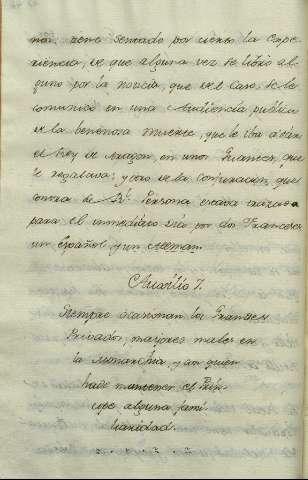 tiene sentado por cierto la Expe-
riencia, de que alguna vez se libró al-
guno por la noticia, que del caso se le
comunicó en una Audiencia publica
de la benenosa muerte, que le iba á dar
el Rey de Aragon en unos Guantes, que
le regalava; y otro de la Conjuracion, que
contra de su Persona estava trazada
para el inmediato dia por dos Franceses
un Español y un Aleman.
Auxilio 7.
Siempre ocasionan los Grandes
Privados, mayores males en
la Monarchia, y con quien
hade mantener el Prin-
cipe alguna fami-
liaridad.